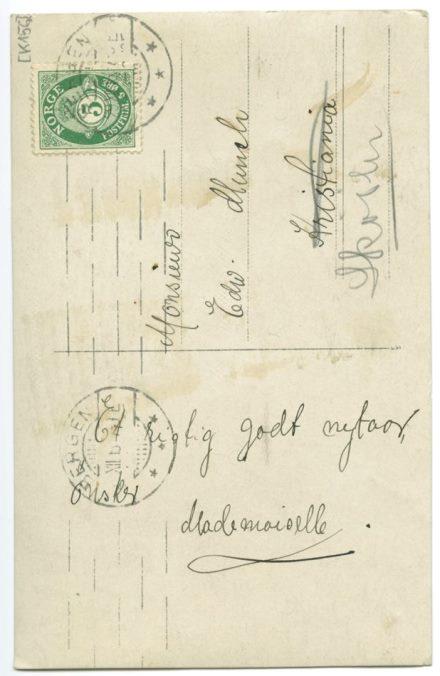 [K156]
NORGE
5
POSTFRIM. 5 ØRE
BERGEN
Monsieur
Edv. Munch
Kristiania
Skrubben
BERGEN
XII
Et rigtig godt nytaar,
ønsker
Mademoiselle.